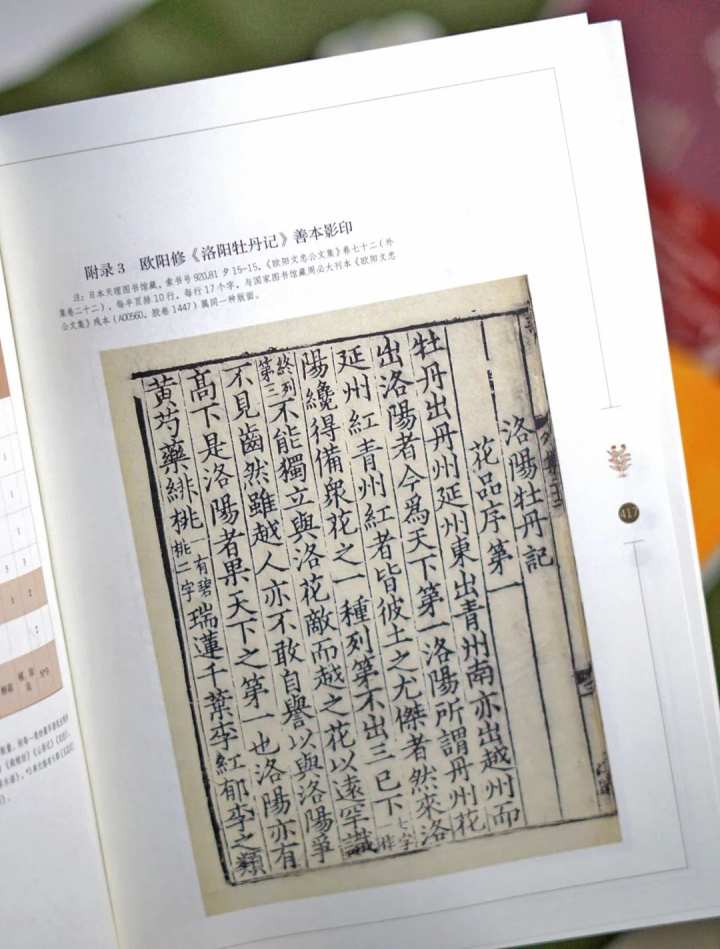 附录3　欧阳修《洛阳牡丹记》善本影印
注：日本天理图书馆藏，索书号920,81 夕15-15，《欧阳文忠公文集》卷七十二（外
集卷二十二），每半页排10行，每行17个字，与国家图书馆藏周必大刊本《欧阳文忠
公文集》残本（A00560，胶卷1447）属同一种版面。
洛陽牡丹記
花品序第一
牡丹出丹州延州東出青州南亦出越州而
出洛陽者今爲天下第一洛陽所謂丹州花
延州紅青州紅者皆彼土之尤傑者然來洛
陽纔得備衆花之一種列第不出三已下七字
終列第三不能獨立與洛花敵而越之花以遠罕識
不見齒然雖越人亦不敢自譽以與洛陽爭
髙下是洛陽者果天下之第一也洛陽亦有
黃芍藥緋桃一有碧桃二字瑞蓮千葉李紅郁李之類
417